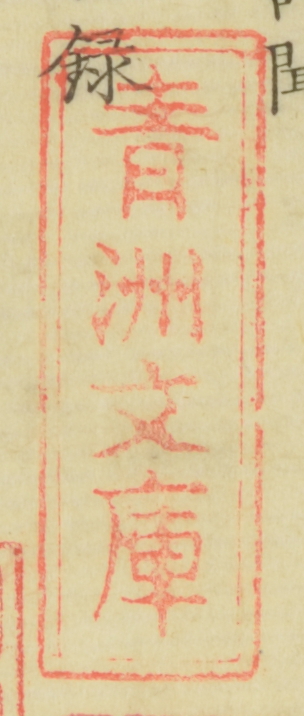 聞
録
青洲文庫